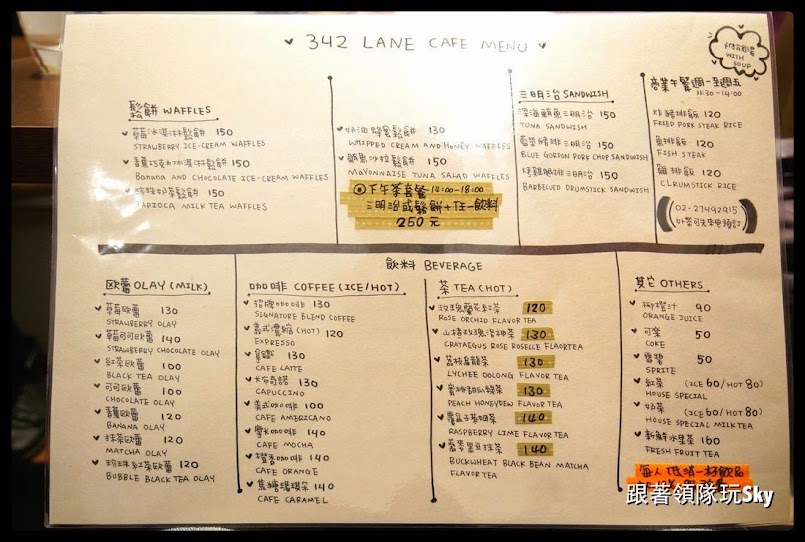 342 LANE CAFE MENU
WITH
SOUP
鬆餅 WAFFLES
草莓冰淇淋鬆餅 150
STRAWBERRY ICE-CREAM WAFFLES
香蕉巧克力冰淇淋鬆餅 150
BANANA AND CHOCOLATE ICE-CREAM WAFFLES
珍珠奶茶鬆餅 150
TAPIOCA MILK TEA WAFFLES
奶油蜂蜜鬆餅 130
WHIPPED CREAM AND HONEY WAFFLES
鮪魚沙拉鬆餅 150
MAYONNAISE TUNA SALAD WAFFLES
下午茶套餐 14:00-18:00
三明治或鬆餅+任一飲料
250元
三明治 SANDWISH
深海鮪魚三明治 150
TUNA SANDWISH
藍帶豬排三明治 150
BLUE GORDON PORK CHOP SANDWISH
烤雞腿排三明治 150
BARBECUED DRUMSTICK SANDWISH
商業午餐 週一至週五
11:30-14:00
炸豬排飯 120
FRIED PORK STEAK RICE
魚排飯 120
FISH STEAK
雞排飯 120
CLRUMSTICK RICE
02-27492915
外帶可先來電預訂
飲料 BEVERAGE
歐蕾 OLAY (MILK)
草莓歐蕾 130
STRAWBERRY OLAY
草莓可可歐蕾 140
STRAWBERRY CHOCOLATE OLAY
紅茶歐蕾 100
BLACK TEA OLAY
可可歐蕾 100
CHOCOLATE OLAY
香蕉歐蕾 120
BANANA OLAY
抹茶歐蕾 120
MATCHA OLAY
珍珠紅茶歐蕾 120
BUBBLE BLACK TEA OLAY
咖啡 COFFEE (ICE/HOT)
招牌咖啡 130
SIGNATURE BLEND COFFEE
義式濃縮 (HOT) 120
EXPRESSO
拿鐵 130
CAFE LATTE
卡布奇諾 130
CAPUCCINO
美式咖啡 100
CAFE AMERICANO
摩卡咖啡 140
CAFE MOCHA
橙香咖啡 140
CAFE ORANGE
焦糖瑪琪朵 140
CAFE CARAMEL
茶 TEA (HOT)
玫瑰蘭花紅茶 120
ROSE ORCHID FLAVOR TEA
山楂玫瑰洛神茶 130
CRATAEGUS ROSE ROSELLE FLAORTEA
荔枝烏龍茶 130
LYCHEE OOLONG FLAVOR TEA
蜜桃甜瓜綠茶 130
PEACH HONEYDEW FLAVOR TEA
覆盆子萊姆茶 140
RASPBERRY LIME FLAVOR TEA
蕎麥黑豆抹茶 140
BUCKWHEAT BLACK BEAN MATCHA
FLAVOR TEA
其它 OTHERS
柳橙汁 90
ORANGE JUICE
可樂 50
COKE
雪碧 50
SPRITE
紅茶 (ICE 60/HOT 80)
HOUSE SPECIAL
奶茶 (ICE 60/HOT 80)
HOUSE SPECIAL MILK TEA
新鮮水果茶 160
FRESH FRUIT TEA
每人低消一杯飲品
跟著領隊玩Sky